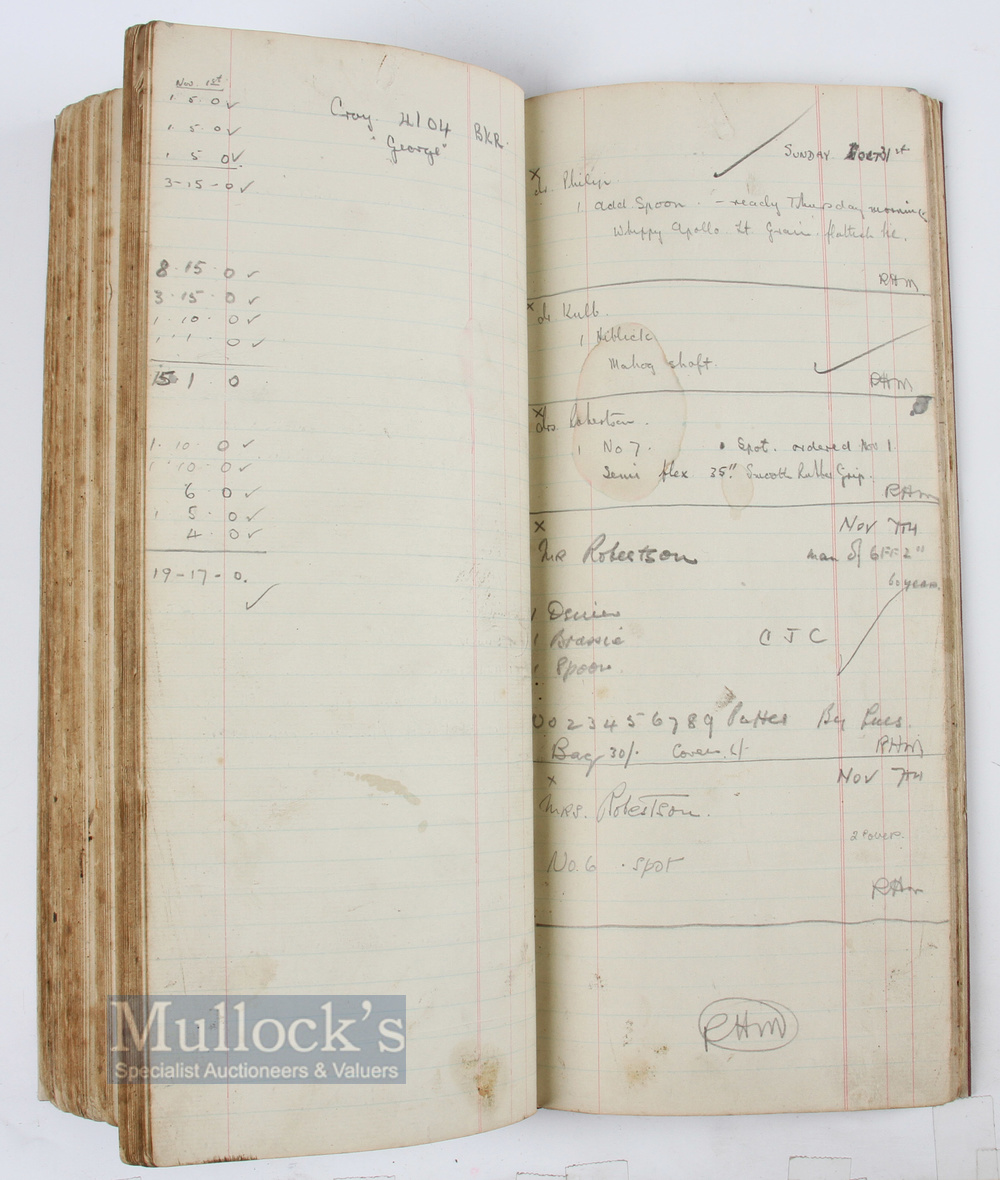 Nov. 1st
1 5 0 ✓
1 5 0 ✓
1 5 0 ✓
3-15-0 ✓
Cray. 4104 BKR.
"George"
8 . 15 . 0 ✓
3 . 15 . 0 ✓
1 . 10 . 0 ✓
1 . 1 . 0 ✓
15 1 0
1 . 10 . 0 ✓
1 . 10 . 0 ✓
6 . 0 ✓
1 5 . 0 ✓
4 . 0 ✓
19-17-0.
SUNDAY Oct 31st
x
Philip
1 add. Spoon. - ready Thursday morning
Whippy Apollo Lt. Grain. flattish lie.
RHM
x
1 Niblick
Mahog shaft.
RHM
x
Mrs. Robertson.
1 No 7. Spot. ordered Nov 1
Semi flex 35". Smooth Rubber Grip.
RHM
x Nov 7TH
MR Robertson man of 6FT 2"
60 years.
1 Driver
1 Brassie C J C
1 Spoon.
No 2 3 4 5 6 7 8 9 Putter
Bag 30/- Covers
RHM
x Nov 7TH
MRS. Robertson.
2 Covers.
No. 6 . Spot
RHM
RHM
Mullock's
Specialist Auctioneers & Valuers